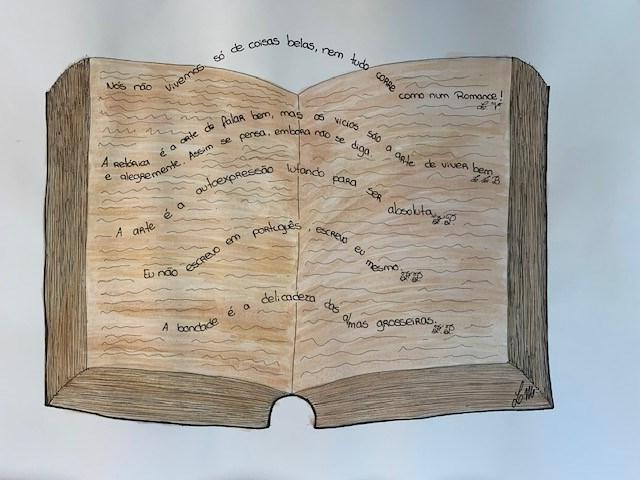 Nós não vivemos só de coisas belas, nem tudo corre como num Romance!
A retórica é a arte de falar bem, mas os vicios são a arte de viver bem
e alegremente. Assim se pensa, embora não se diga.
A arte é a autoexpressão lutando para ser absoluta.
Eu não escrevo em português, escrevo eu mesmo.
A bondade é a delicadeza das almas grosseiras.